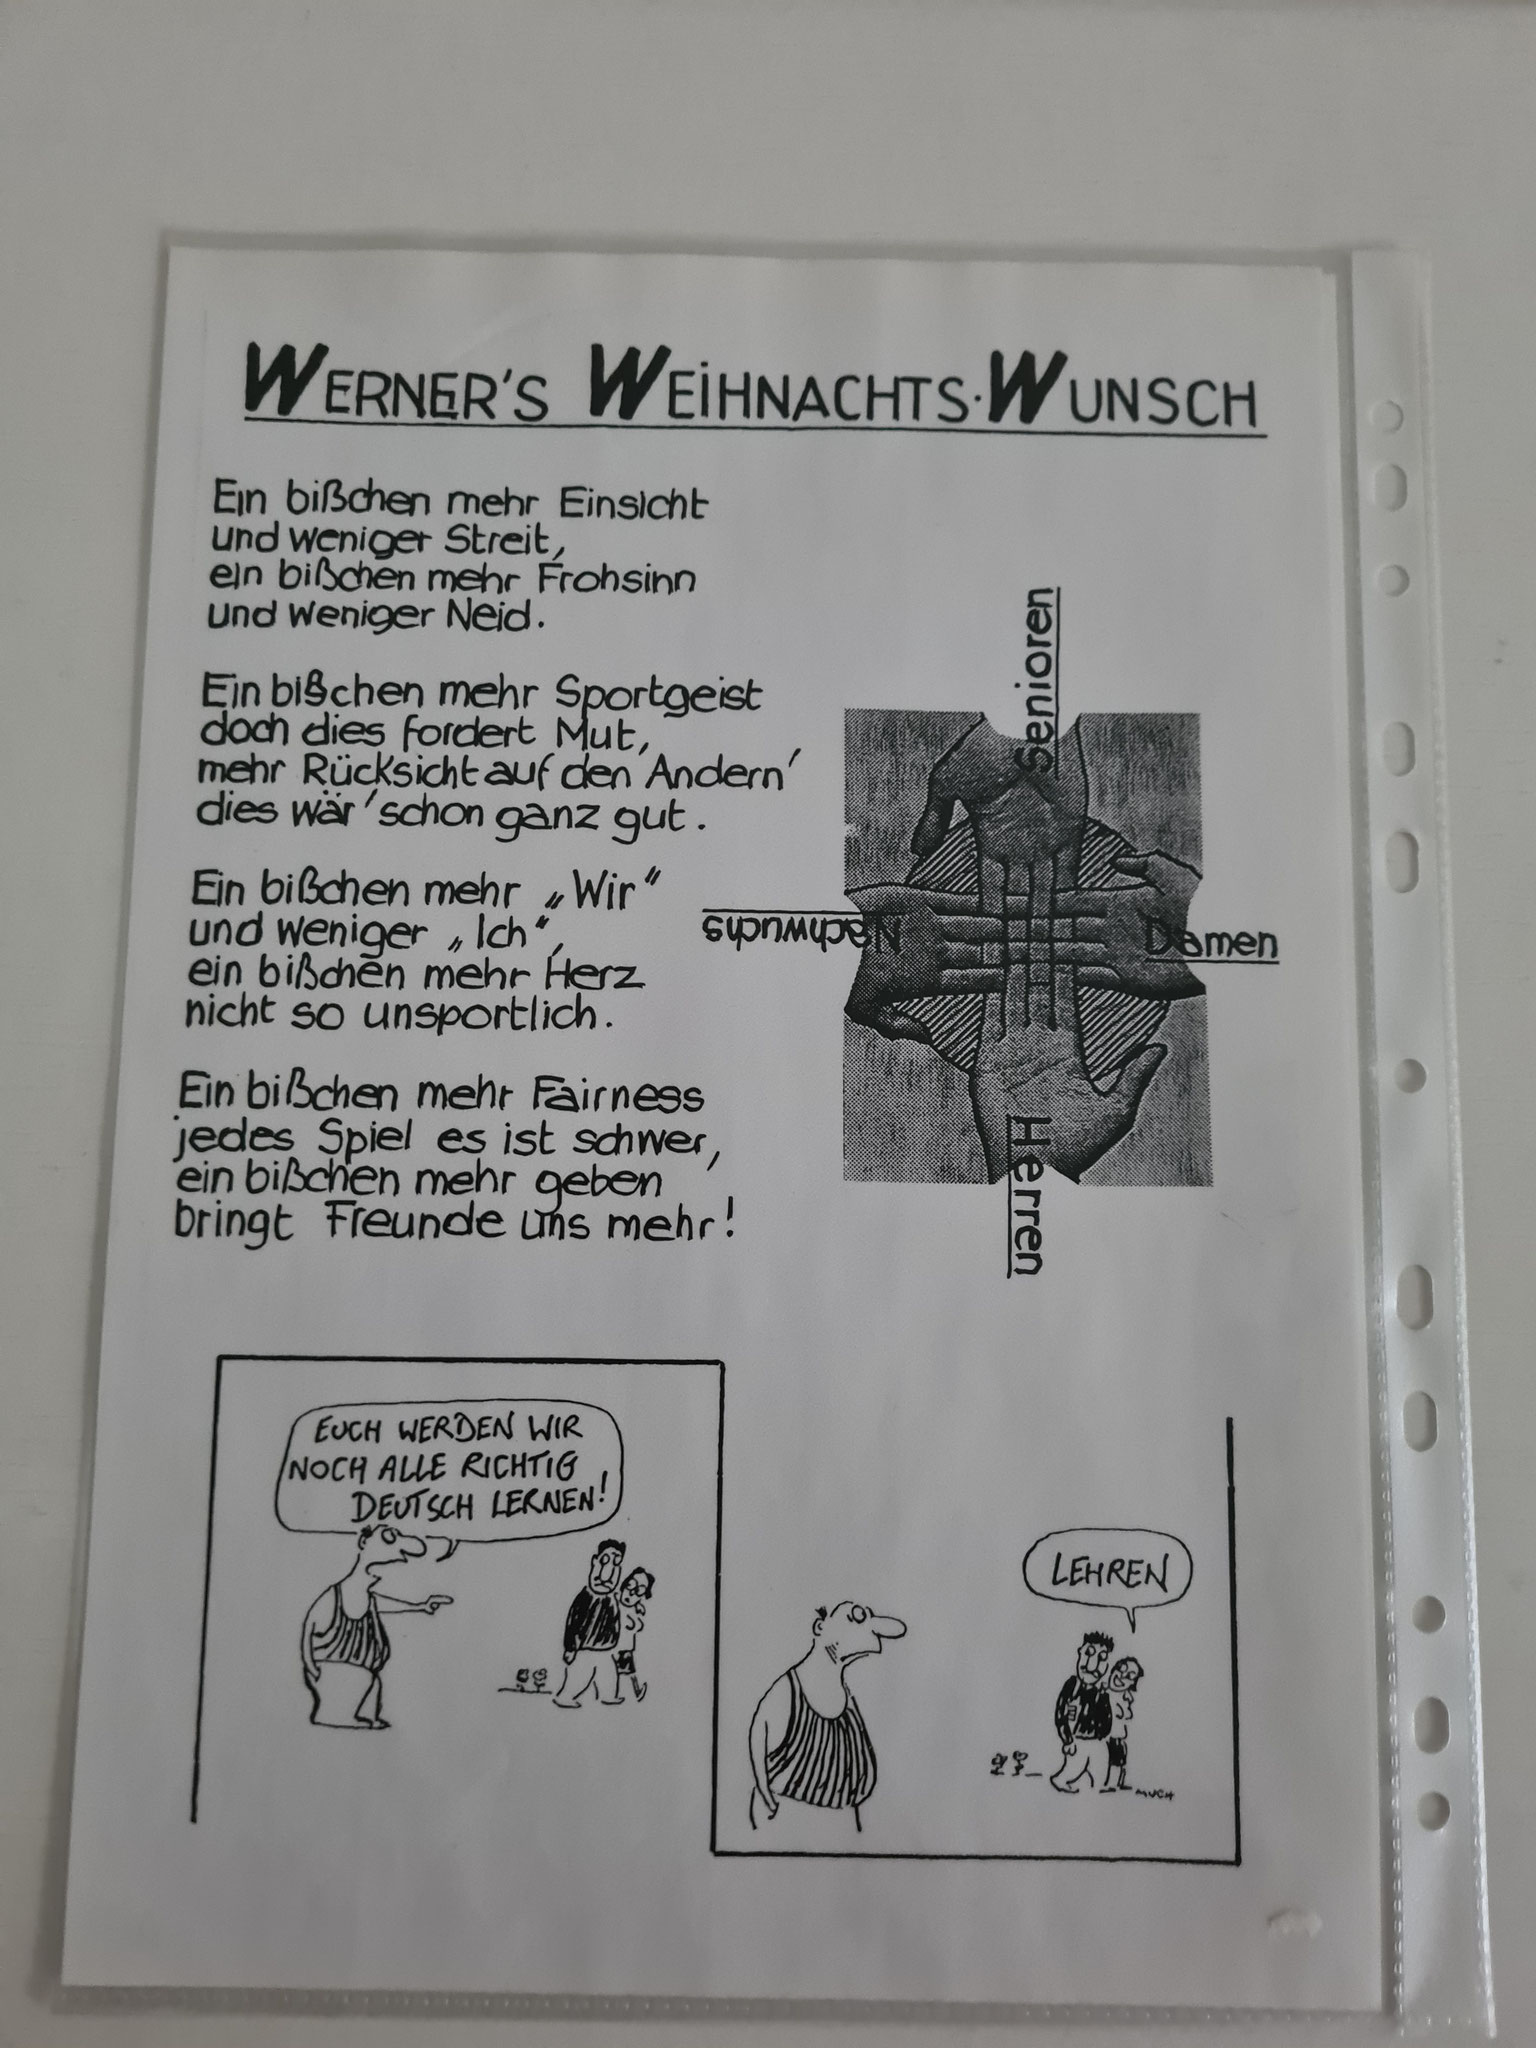 WERNER'S WEIHNACHTS·WUNSCH
Ein bißchen mehr Einsicht
und weniger Streit,
ein bißchen mehr Frohsinn
und weniger Neid.
Ein bißchen mehr Sportgeist
doch dies fordert Mut,
mehr Rücksicht auf den Andern'
dies wär' schon ganz gut.
Ein bißchen mehr „Wir“
und weniger „Ich“,
ein bißchen mehr Herz
nicht so unsportlich.
Ein bißchen mehr Fairness
jedes Spiel es ist schwer,
ein bißchen mehr geben
bringt Freunde uns mehr!
Senioren
Nachwuchs
Damen
Herren
EUCH WERDEN WIR
NOCH ALLE RICHTIG
DEUTSCH LERNEN!
LEHREN
MUCH